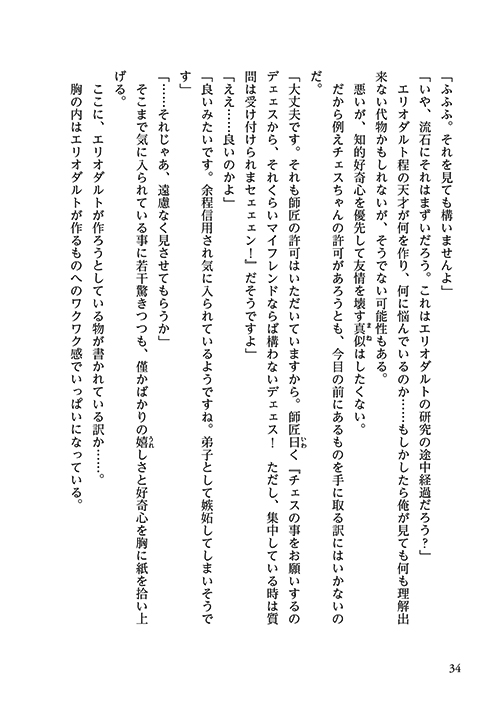 「ふふふ。それを見ても構いませんよ」
「いや、流石にそれはまずいだろう。これはエリオダルトの研究の途中経過だろう？」
エリオダルト程の天才が何を作り、何に悩んでいるのか……もしかしたら俺が見ても何も理解出
来ない代物かもしれないが、そうでない可能性もある。
悪いが、知的好奇心を優先して友情を壊す真似はしたくない。
だから例えチェスちゃんの許可があろうとも、今目の前にあるものを手に取る訳にはいかないの
だ。
「大丈夫です。それも師匠の許可はいただいていますから。師匠曰く『チェスの事をお願いするの
デェェスから、それくらいマイフレンドならば構わないデェェス！　ただし、集中している時は質
問は受け付けられまセェェェン！』だそうですよ」
「ええ……良いのかよ」
「良いみたいです。余程信用され気に入られているようですね。弟子として嫉妬してしまいそうで
す」
「……それじゃあ、遠慮なく見させてもらうか」
そこまで気に入られている事に若干驚きつつも、僅かばかりの嬉しさと好奇心を胸に紙を拾い上
げる。
ここに、エリオダルトが作ろうとしている物が書かれている訳か……。
胸の内はエリオダルトが作るものへのワクワク感でいっぱいになっている。
34